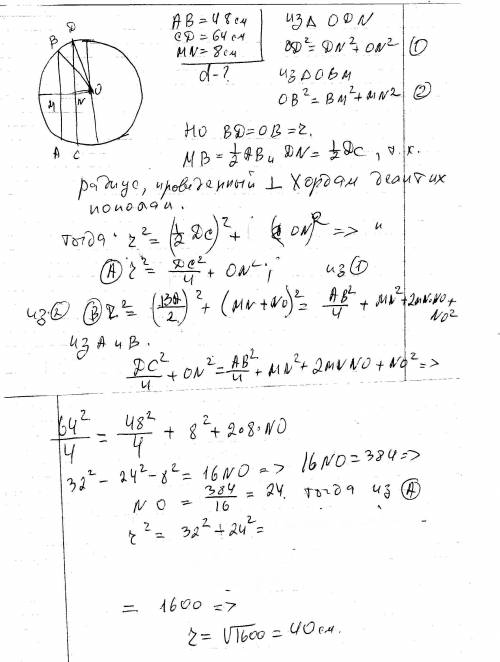 B D
O
M N
A C
AB = 48 см
CD = 64 см
MN = 8 см
d - ?
из Δ ODN
OD² = DN² + ON² ①
из Δ OBM
OB² = BM² + MN2 ②
Но BD = OB = r.
MB = 1/2 AB и DN = 1/2 DC, т.к.
радиус, проведенный ⊥ хордам делит их
пополам.
тогда r² = (1/2 DC)² + (ON)² => и
Ⓐ r² = DC²/4 + ON²; из ①
из ② Ⓑ r² = (BA/2)² + (MN + NO)² = AB²/4 + MN² + 2MN·NO +
NO²
из A и B.
DC²/4 + ON² = AB²/4 + MN² + 2MN NO + NO² =>
64²/4 = 48²/4 + 8² + 2·8·NO
32² - 24² - 8² = 16NO => 16NO = 384 =>
NO = 384/16 = 24. тогда из Ⓐ
r² = 32² + 24² =
= 1600 =>
r = √1600 = 40 см.